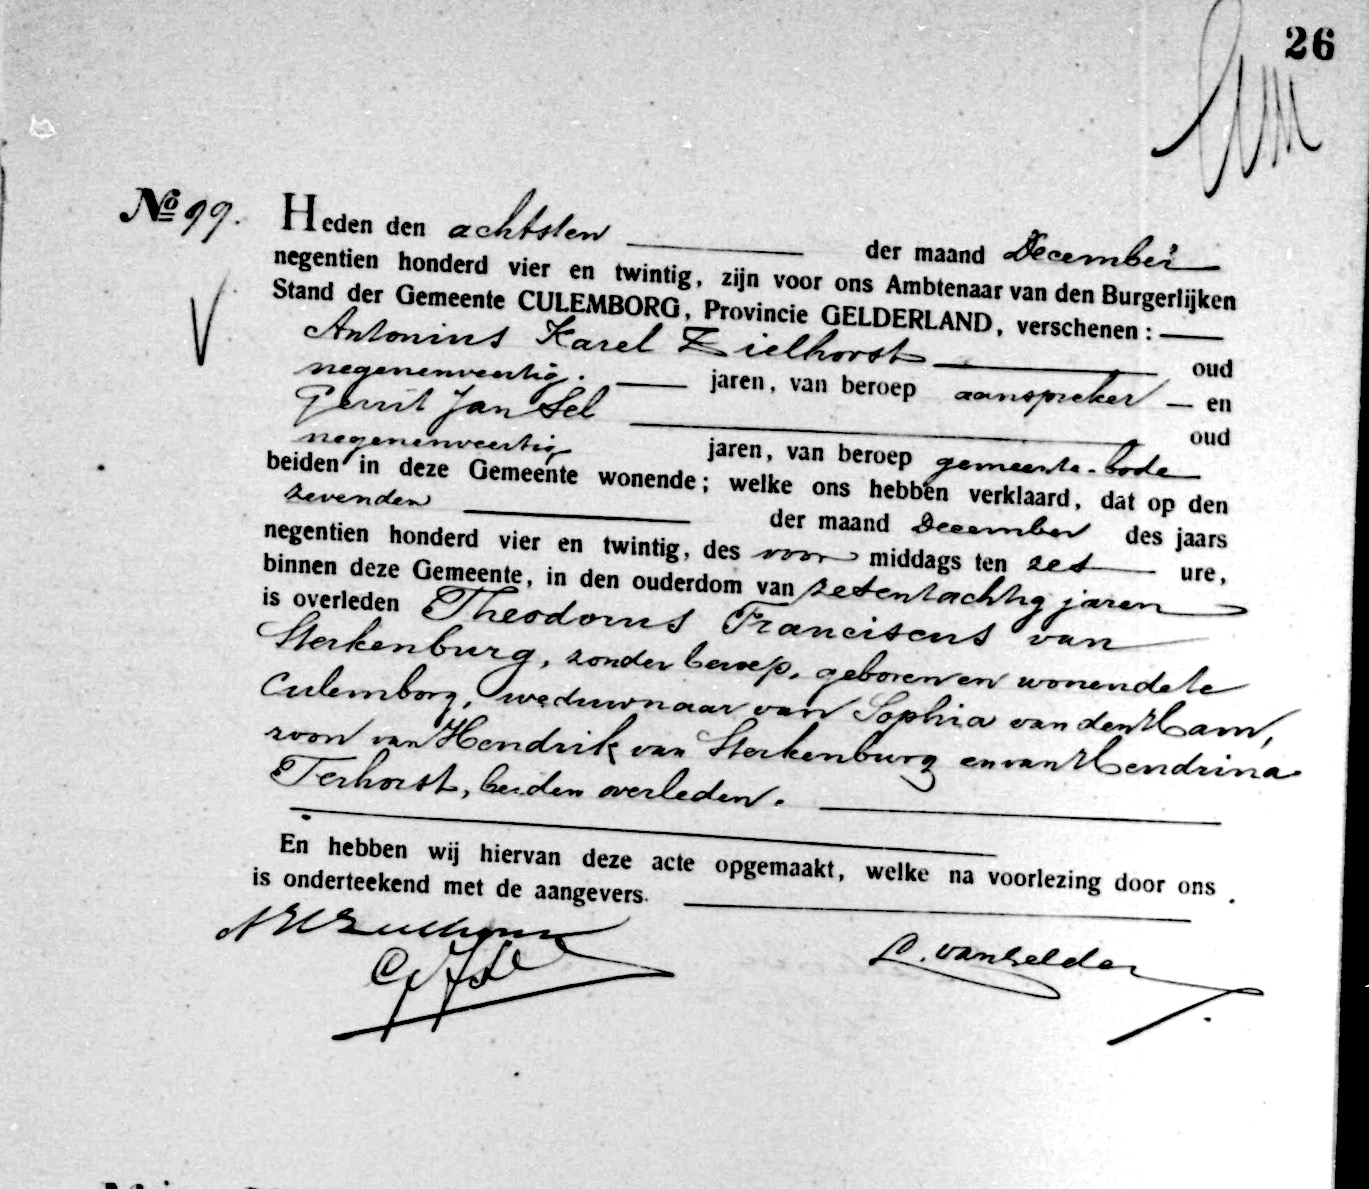 26
No 99.
Heden den achtsten der maand December
negentien honderd vier en twintig, zijn voor ons Ambtenaar van den Burgerlijken
Stand der Gemeente CULEMBORG, Provincie GELDERLAND, verschenen:
Antonius Karel Zielhorst oud
negenenveertig. jaren, van beroep aanspreker en
Gerrit Jan Sel oud
negenenveertig jaren, van beroep gemeente-bode
beiden in deze Gemeente wonende; welke ons hebben verklaard, dat op den
zevenden der maand December des jaars
negentien honderd vier en twintig, des voor middags ten zes ure,
binnen deze Gemeente, in den ouderdom van zesentachtig jaren
is overleden Theodorus Franciscus van
Sterkenburg, zonder beroep, geboren en wonende te
Culemborg, weduwnaar van Sophia van den Ham,
zoon van Hendrik van Sterkenburg en van Hendrina
Terhorst, beiden overleden.
En hebben wij hiervan deze acte opgemaakt, welke na voorlezing door ons
is onderteekend met de aangevers.
GJSel L. van Gelder